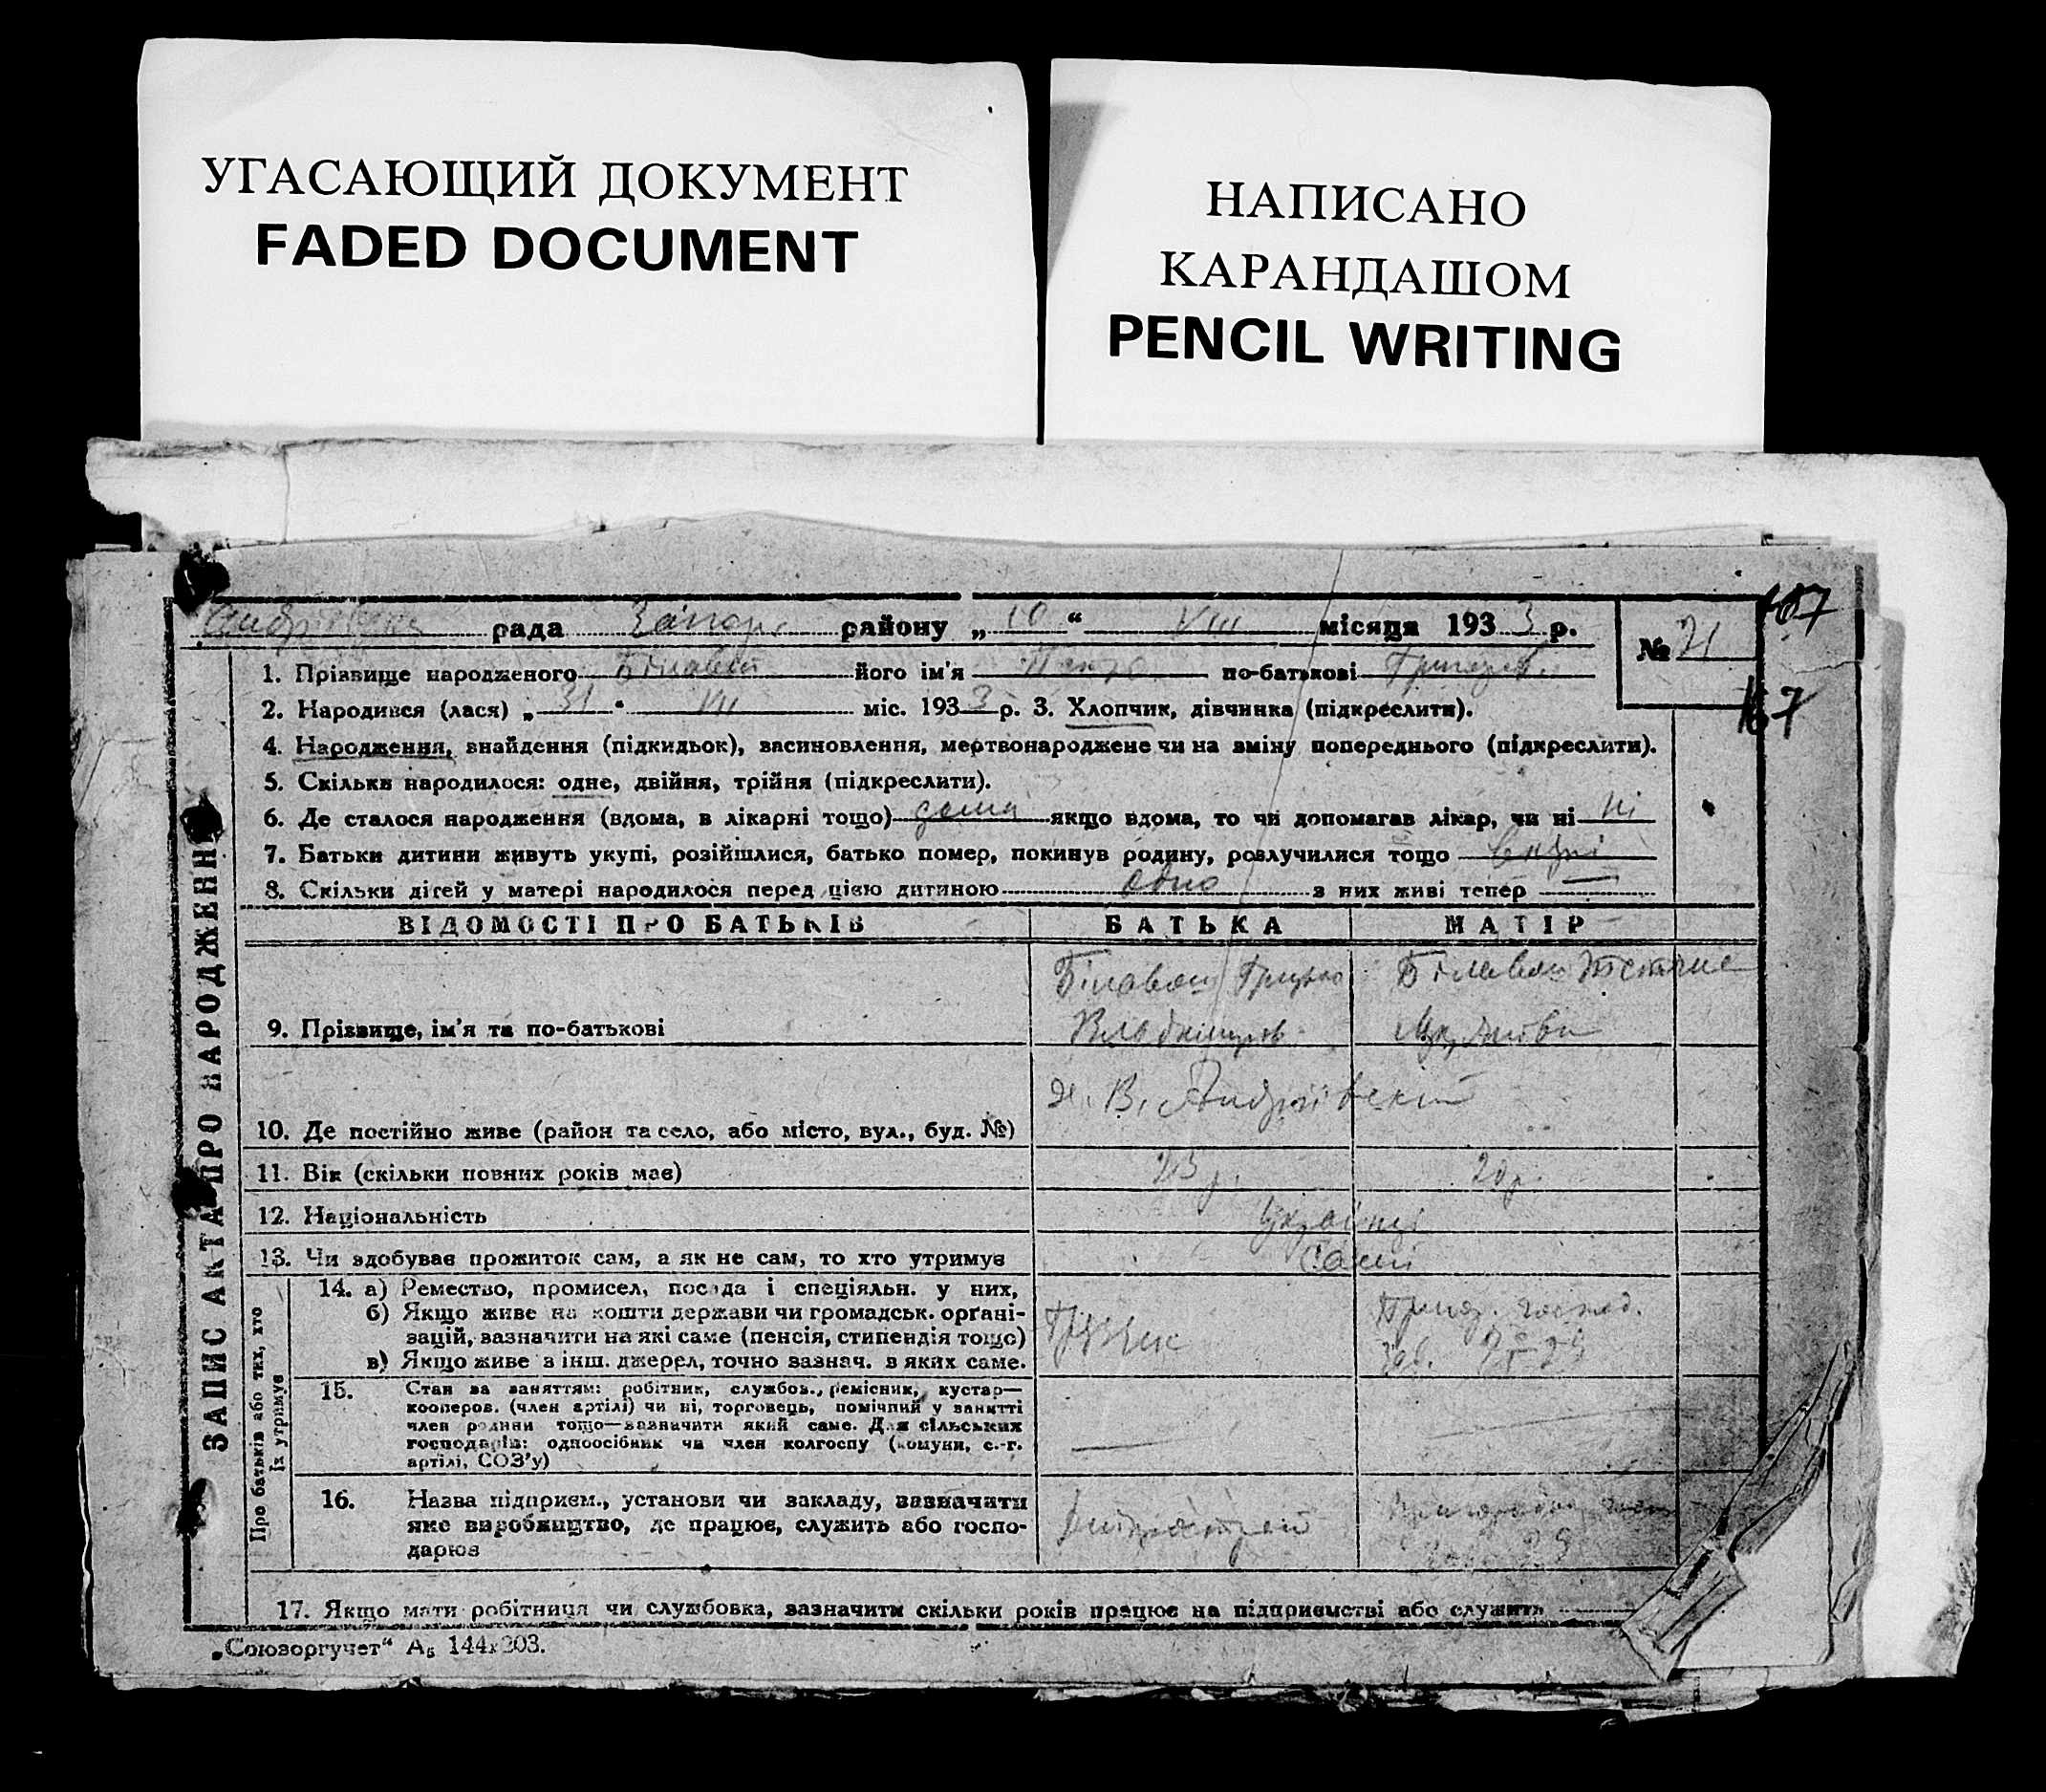 УГАСАЮЩИЙ ДОКУМЕНТ
FADED DOCUMENT
НАПИСАНО
КАРАНДАШОМ
PENCIL WRITING
107
рада район­у „ 10 “ VIII місяця 193 3 р.
№ 21
167
1. Прізвище народженого його ім'я по-батькові
2. Народився (лася) „ 31 “ VII міс. 193 3 р. 3. Хлопчик, дівчинка (підкреслити).
4. Народження, знайдення (підкидьок), засиновлення, мертвонароджене чи на зміну попереднього (підкреслити).
5. Скільки народилося: одне, двійня, трійня (підкреслити).
6. Де сталося народження (вдома, в лікарні тощо) дома якщо вдома, то чи допомагав лікар, чи ні ні
7. Батьки дитини живуть укупі, розійшлися, батько помер, покинув родину, розлучилися тощо
8. Скільки дітей у матері народилося перед цією дитиною одно з них живі тепер —
ЗАПИС АКТА ПРО НАРОДЖЕННЯ
ВІДОМОСТІ ПРО БАТЬКІВ БАТЬКА МАТІР
Білаваш Грицько
9. Прізвище, ім'я та по-батькові
10. Де постійно живе (район та село, або місто, вул., буд. №)
11. Вік (скільки повних років має) 23 р. 20 р.
12. Національність Українці
13. Чи здобуває прожиток сам, а як не сам, то хто утримує Самі
Про батьків або тих, хто
їх утримує
14. а) Ремество, промисел, посада і спеціяльн. у них,
б) Якщо живе на кошти держави чи громадськ. організацій, зазначити на які саме (пенсія, стипендія тощо)
в) Якщо живе з інш. джерел, точно зазнач. з яких саме.
15. Стан за заняттям: робітник, службов., ремісник, кустар—
кооперов. (член артілі) чи ні, торговець, помічний у занятті
член родини тощо—зазначити який саме. Для сільських
господарів: одноосібник чи член колгоспу (комуни, с.-г.
артілі, СОЗ'у)
16. Назва підприєм., установи чи закладу, зазначити
яке виробництво, де працює, служить або госпо-
дарює
17. Якщо мати робітниця чи службовка, зазначити скільки років працює на підприємстві або служить
„Союзоргучет“ А₅ 144х203.